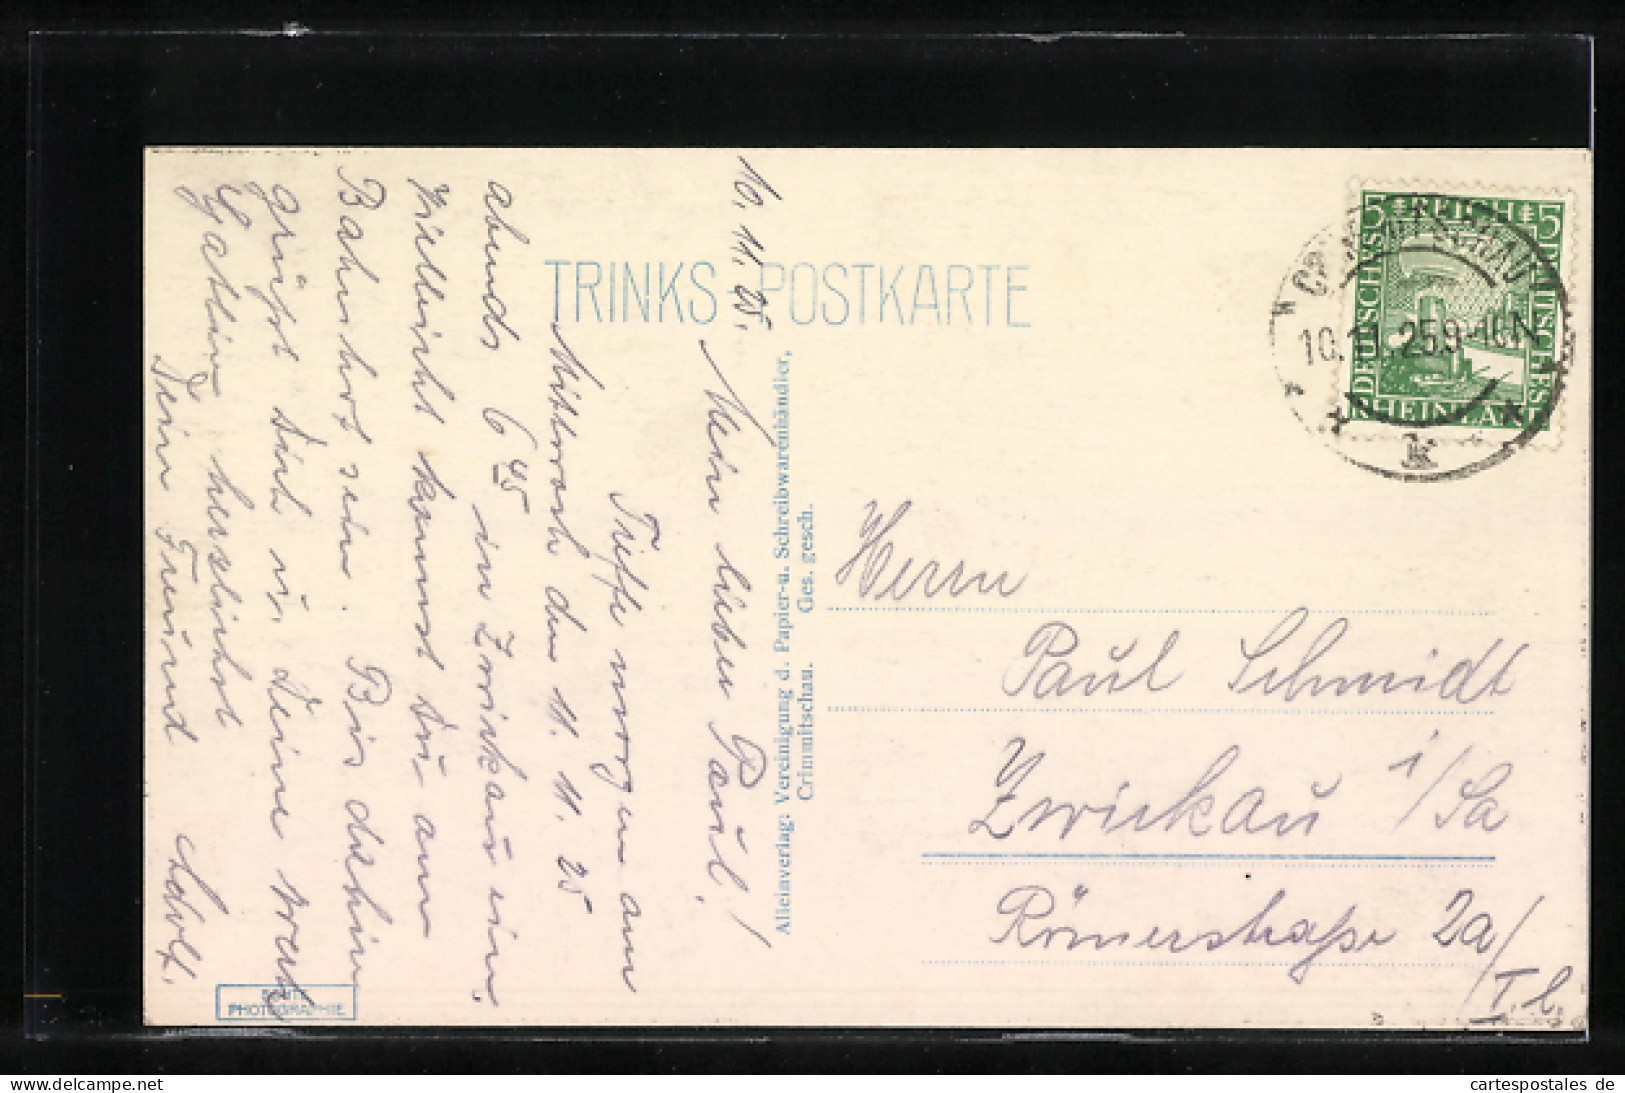 10. 11. 25.
Mein lieber Paul!
Treffe morgen am
Mittwoch den 11. 11. 25
abends 6 45 in Zwickau ein.
Vielleicht kannst Du am
Bahnhof sein. Bis dahin
grüßt Dich u. Deine
Gattin herzlichst
Dein Freund Adolf.
TRINKS POSTKARTE
Alleinverlag: Vereinigung d. Papier-u. Schreibwarenhändler,
Crimmitschau. Ges. gesch.
ECHTE
PHOTOGRAPHIE
5 REICH 5
DEUTSCHES
DEUTSCHES
RHEINLAND
CRIMMITSCHAU
10.11.25.9-10 V.
k
Herrn
Paul Schmidt
Zwickau i/Sa
Römerstraße 2a/
I. l.
delcampe.net
cartespostales de